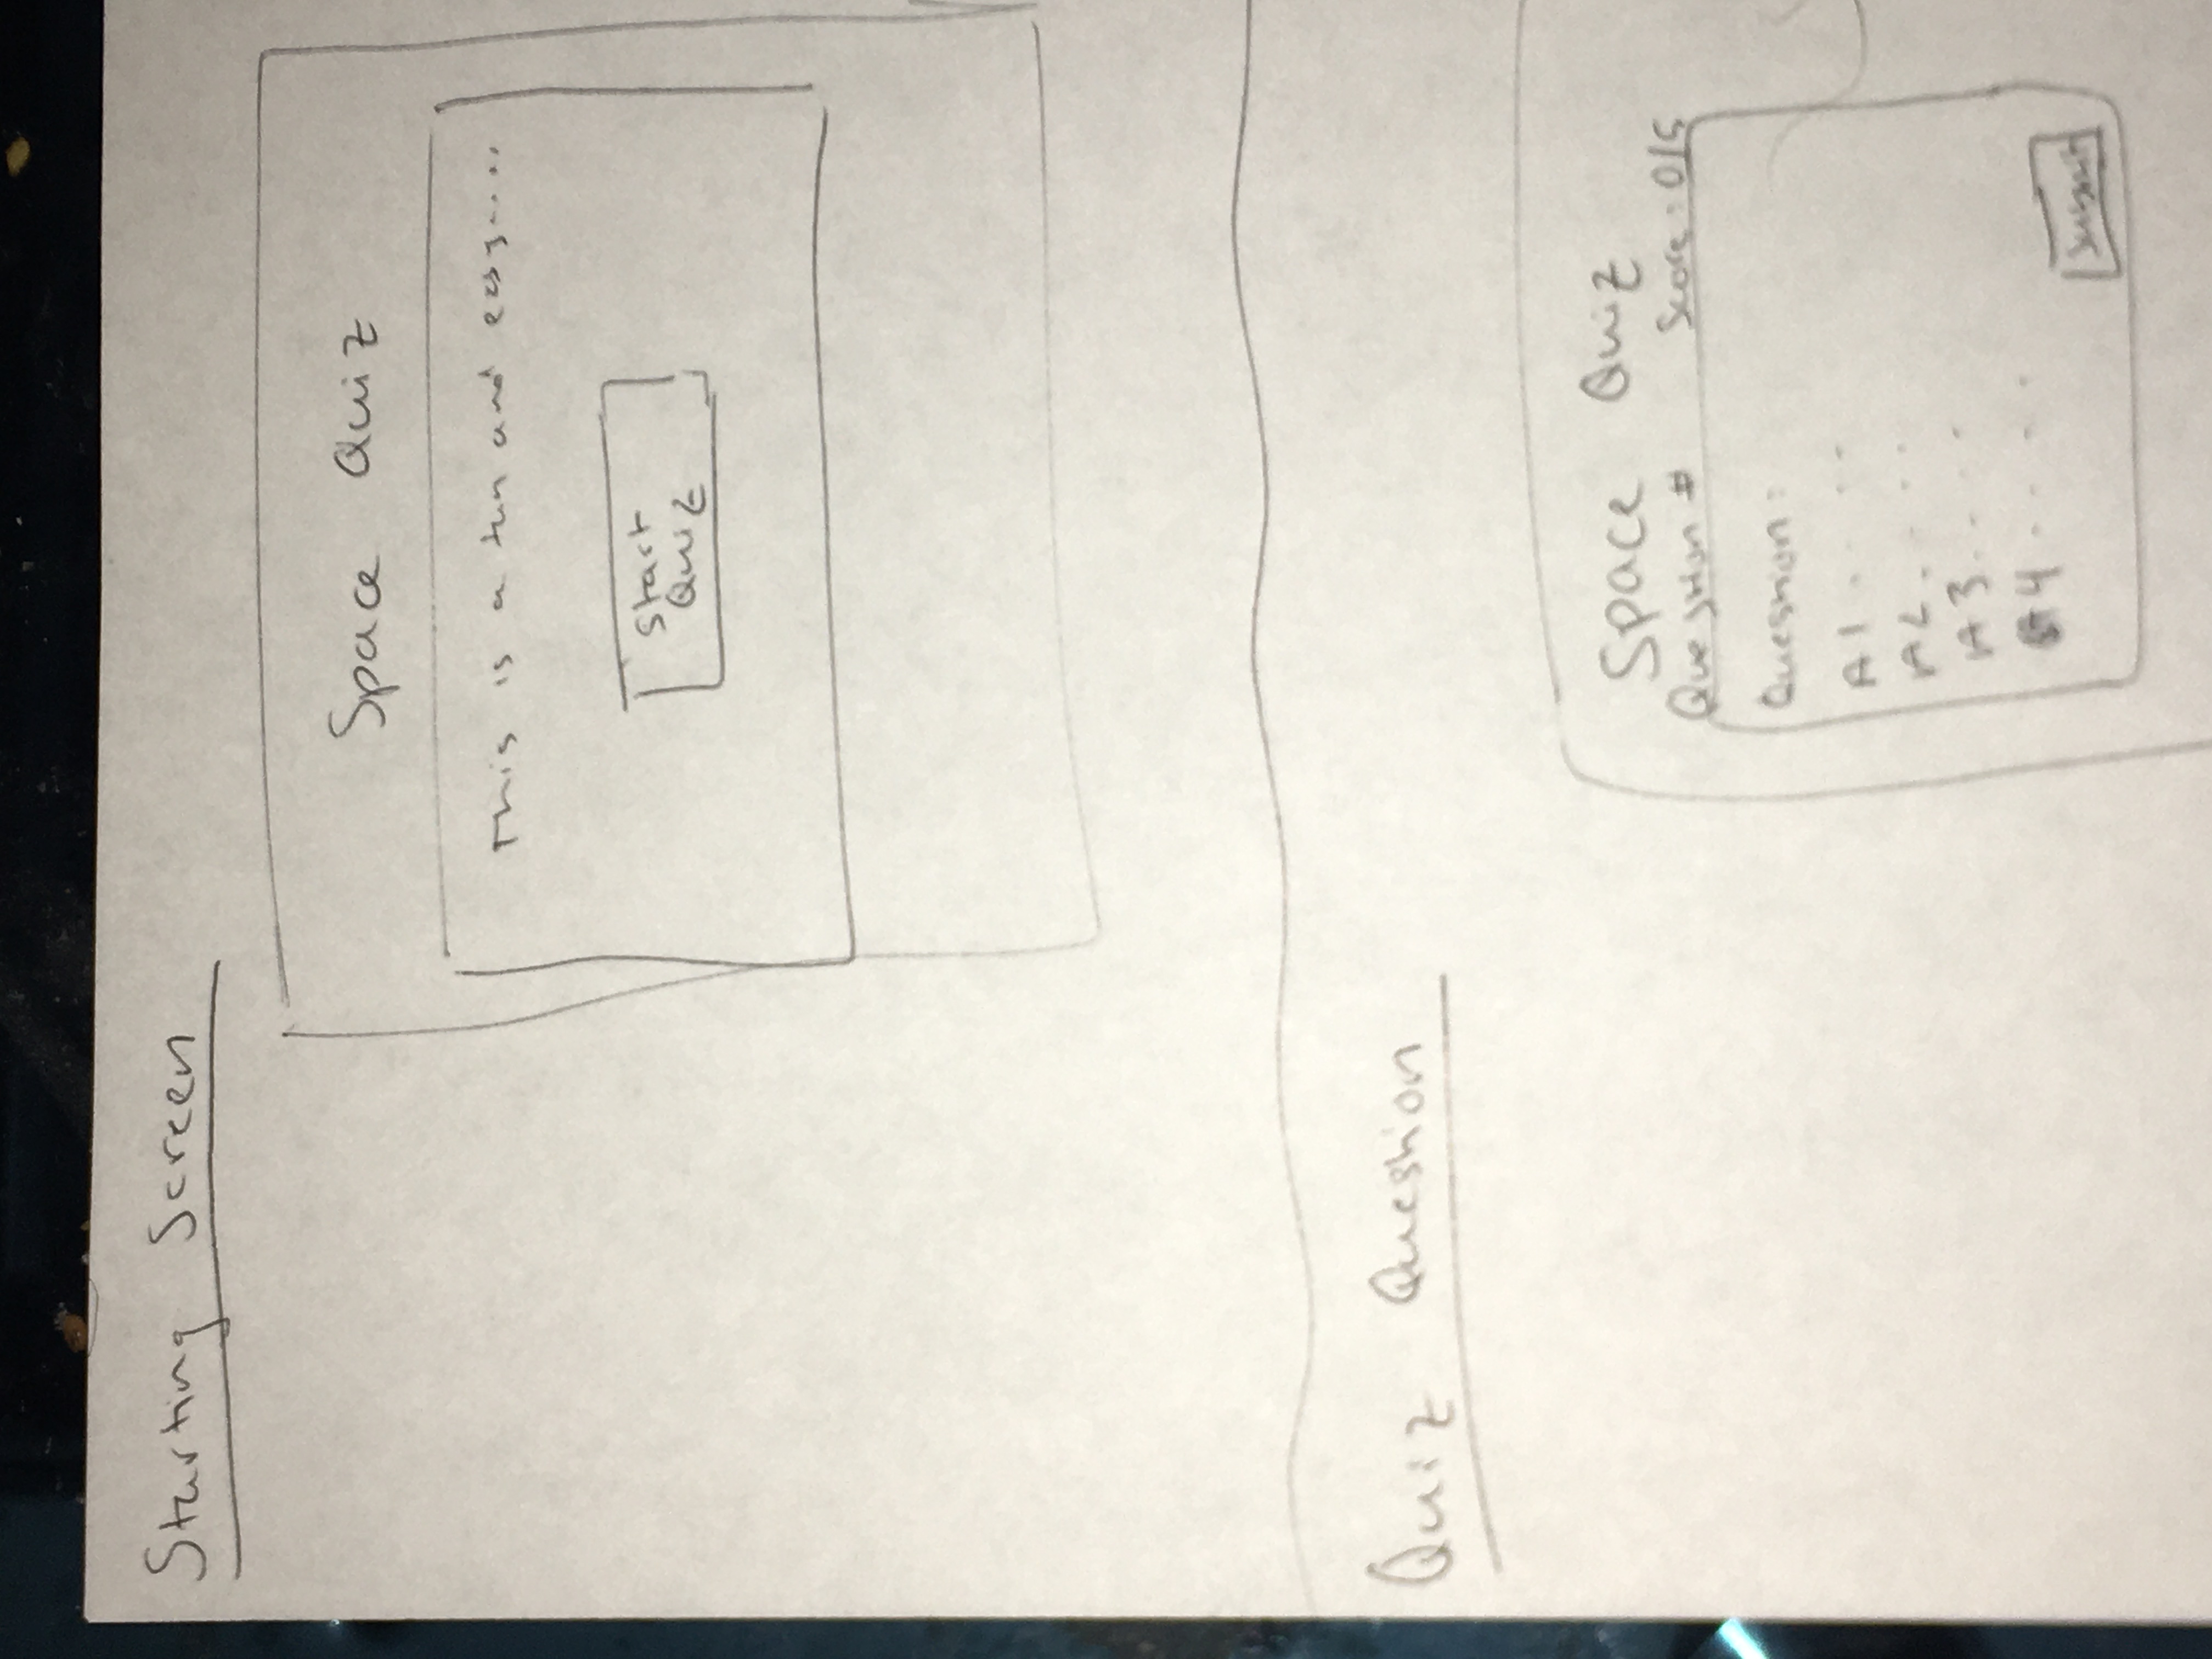 Starting Screen
Space Quiz
This is a fun and easy.....
Start
Quiz
Quiz Question
Space Quiz
Question # Score: 0/5
Question:
A1. . . .
A2. . . .
A3. . . .
A4. . . .
Submit